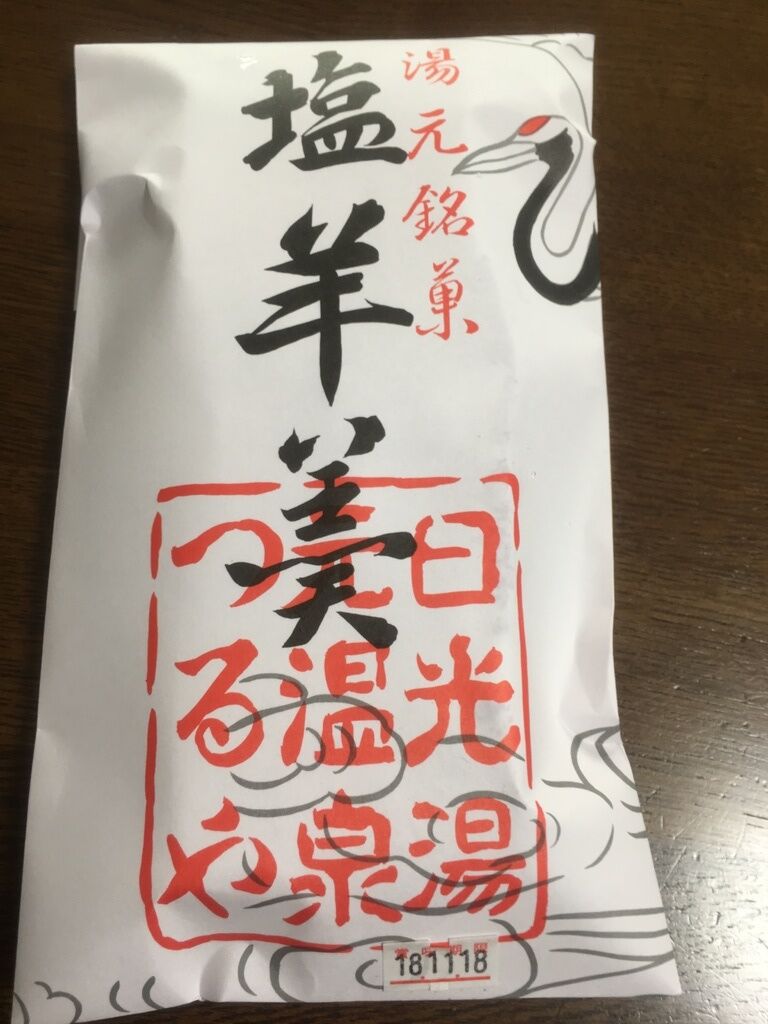 湯元銘菓
塩羊羹
日光湯
元温泉
つるや
賞味期限
181118